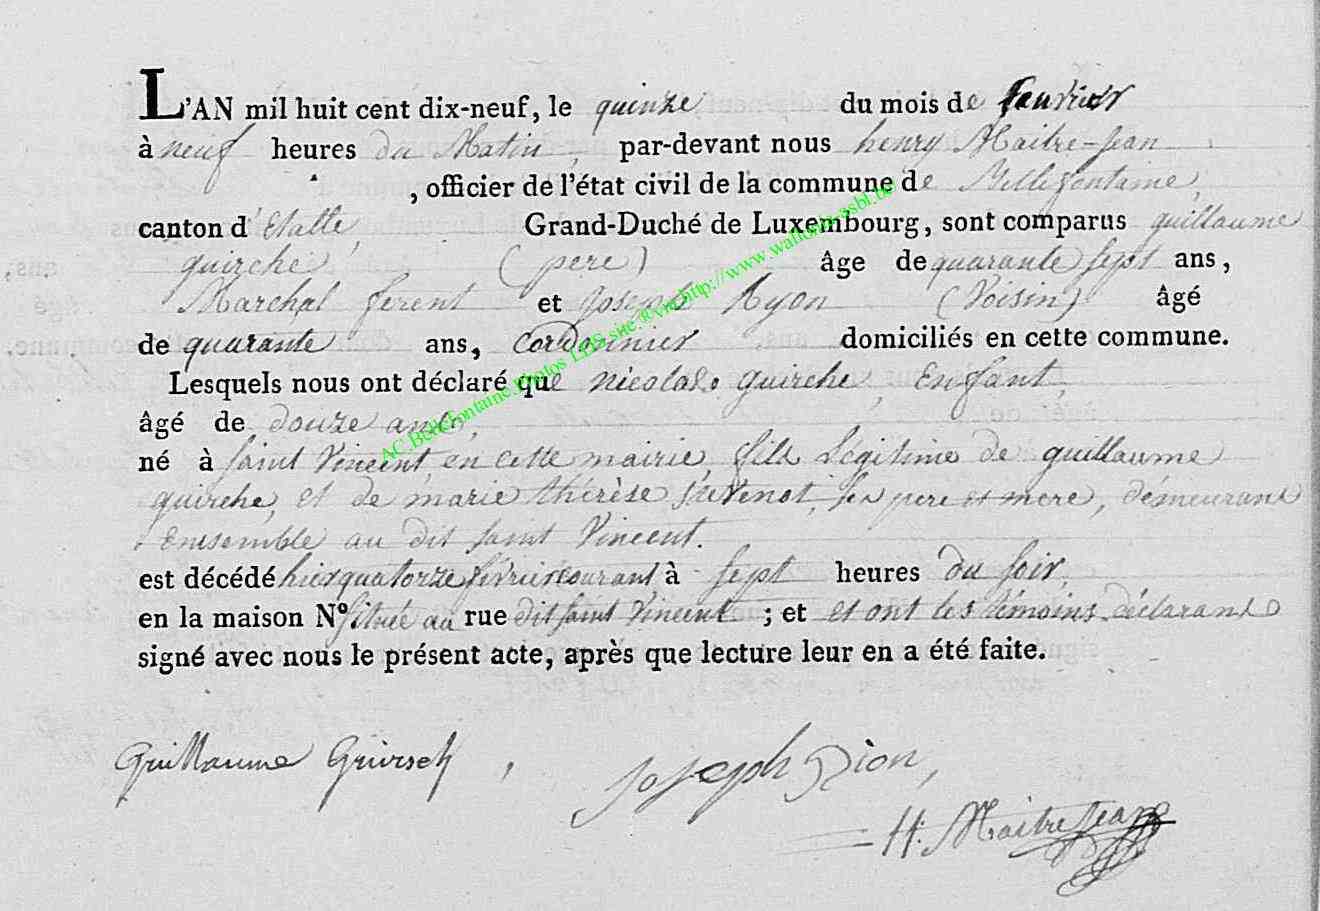 L'AN mil huit cent dix-neuf, le quinze du mois de fevrier
à neuf heures du Matin, par-devant nous henry Maitre-Jean
, officier de l'état civil de la commune de Bellefontaine,
canton d'Etalle, Grand-Duché de Luxembourg, sont comparus guillaume
guirche, (pere) âge de quarante sept ans,
Marchal ferent et Joseph Ryon (Voisin) âgé
de quarante ans, Cordonnier domiciliés en cette commune.
Lesquels nous ont déclaré que nicolas guirche, Enfant,
âgé de douze ans,
né à saint Vincent en cette mairie, fils Légitime de guillaume
guirche, et de marie thérèse, ses pere et mere, demeurant
Ensemble au dit saint Vincent.
est décédé hier quatorze février courant à sept heures du soir,
en la maison Nº située au rue dit saint Vincent ; et et ont les témoins déclarans
signé avec nous le présent acte, après que lecture leur en a été faite.
Guillaume Guirsch,
Joseph Rion,
H. Maitre Jean
AC.Bellefontaine.Photos LDS site @via http://www.wallonia-asbl.be